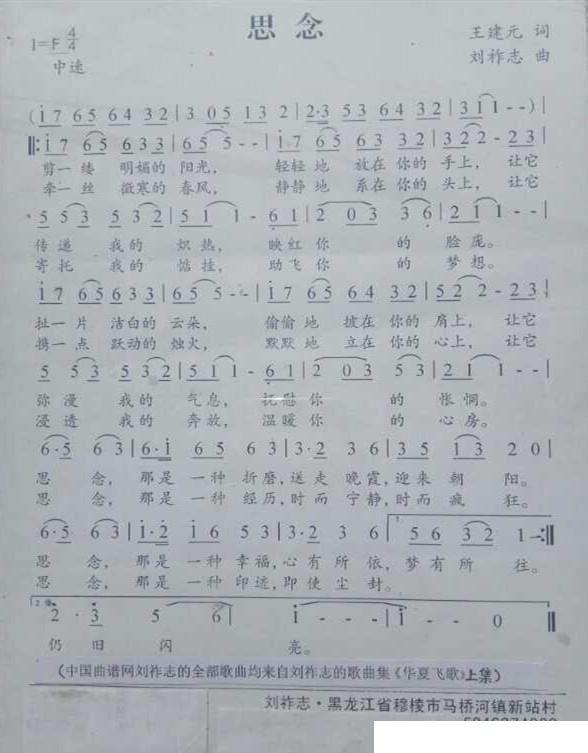 思念
1=F 4/4
王建元 词
中速
刘祚志 曲
(i 7 6 5 6 4 3 2 | 3 0 5 1 3 2 | 2·3 5 3 6 4 3 2 | 3 1 1 - - ) |
‖: i 7 6 5 6 3 3 | 6 5 5 - - | i 7 6 5 6 3 3 2 | 3 2 2 - 2 3 |
剪一缕 明媚的 阳光， 轻轻地 放在你的 手上，让它
牵一丝 微寒的 春风， 静静地 系在你的 头上，让它
5 5 3 5 3 2 | 5 1 1 - 6 1 | 2 0 3 3 6 | 2 1 1 - - |
传递 我的 炽热， 映红你 的 脸庞。
寄托 我的 惦挂， 助飞你 的 梦想。
i 7 6 5 6 3 3 | 6 5 5 - - | i 7 6 5 6 4 3 2 | 5 2 2 - 2 3 |
扯一片 洁白的 云朵， 偷偷地 披在你的 肩上，让它
携一点 跃动的 烛火， 默默地 立在你的 心上，让它
5 5 3 5 3 2 | 5 1 1 - 6 1 | 2 0 3 5 3 | 2 1 1 - - |
弥漫 我的 气息， 抚慰你 的 怅惘。
浸透 我的 奔放， 温暖你 的 心房。
6·5 6 3 | 6·i 6 5 6 3 | 3·2 3 6 | 3 5 1 3 2 0 |
思 念，那是一种折磨，送走晚霞，迎来朝 阳。
思 念，那是一种经历，时而宁静，时而疯 狂。
6·5 6 3 | i·2 i 6 5 3 | 3·2 3 6 | 1. 5 6 3 2 1 - :‖
思 念，那是一种幸福，心有所依，梦有所 往。
思 念，那是一种印迹，即使尘封。
2. 2 · 3 5 6 | i - - - | i - - 0 ‖
仍 旧 闪 亮。
(中国曲谱网刘祚志的全部歌曲均来自刘祚志的歌曲集《华夏飞歌》上集)
刘祚志·黑龙江省穆棱市马桥河镇新站村